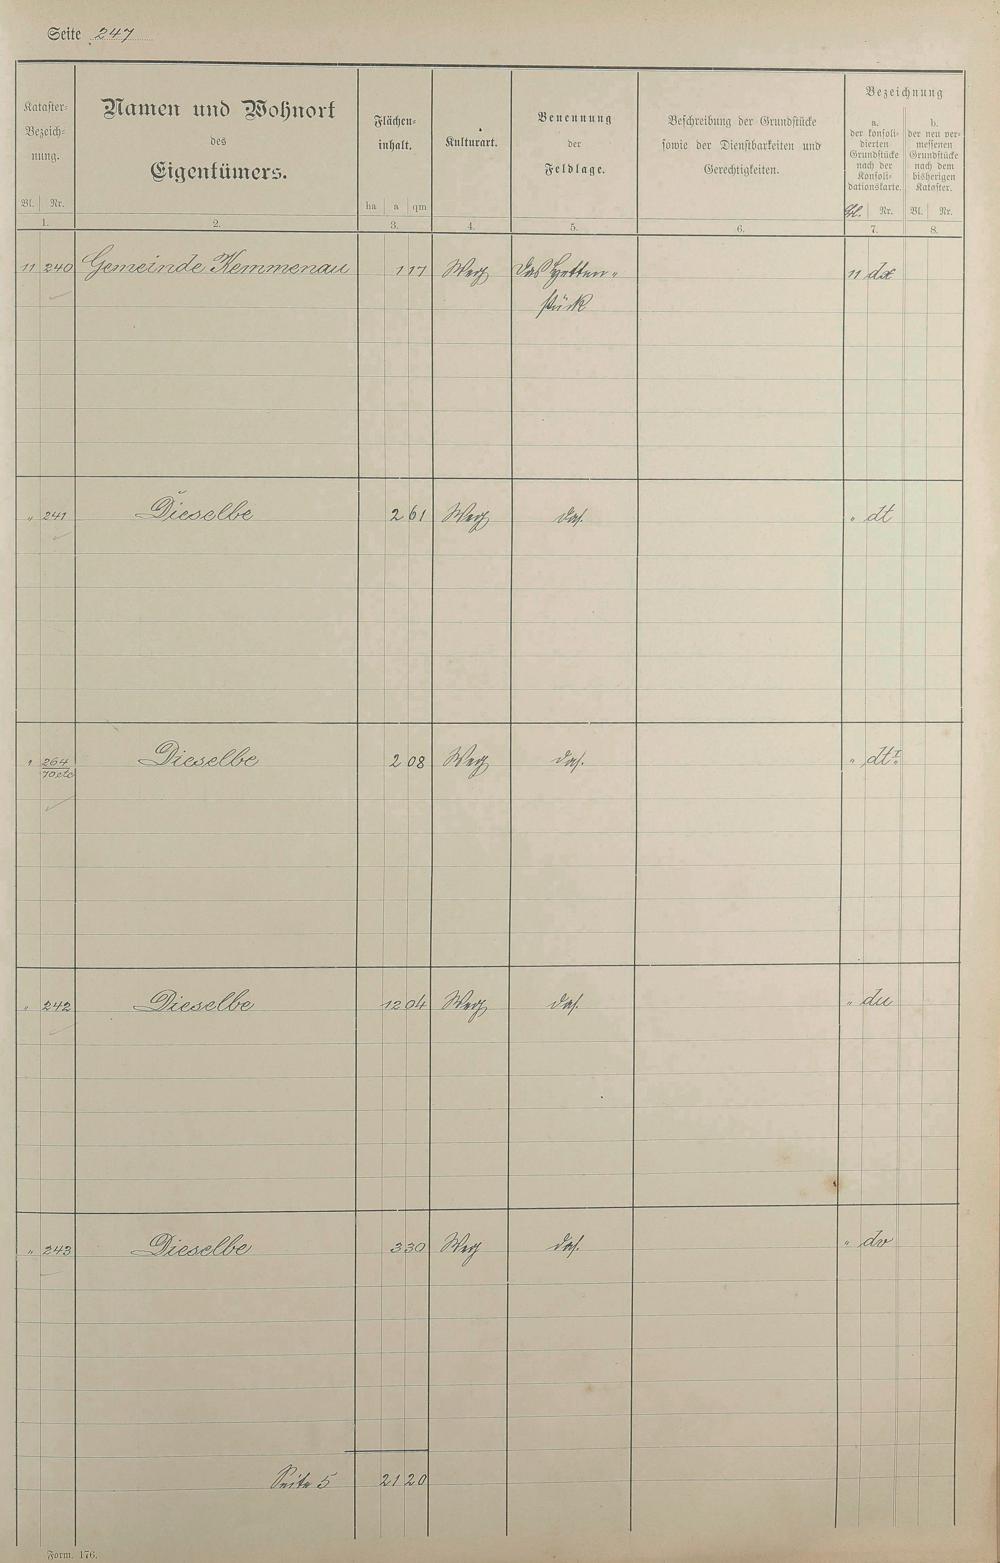 Seite 247
Kataster-
Bezeich-
nung.
Bl. Nr.
1.
Namen und Wohnort
des
Eigentümers.
2.
Flächen-
inhalt.
ha a qm
3.
Kulturart.
4.
Benennung
der
Feldlage.
5.
Beschreibung der Grundstücke
sowie der Dienstbarkeiten und
Gerechtigkeiten.
6.
Bezeichnung
a.
der konsoli-
dierten
Grundstücke
nach der
Konsoli-
dationskarte.
Nr.
7.
b.
der neu ver-
messenen
Grundstücke
nach dem
bisherigen
Kataster.
Bl. Nr.
8.
11 240 Gemeinde Kemmenau 1 17 Weg das
stück
11
" 241 Dieselbe 2 61 Weg das. " dt
" 264/70 etc Dieselbe 2 08 Weg das. " dt I
" 242 Dieselbe 12 04 Weg das. " du
" 243 Dieselbe 3 30 Weg das. " dv
Seite 5 21 20
Form. 176.